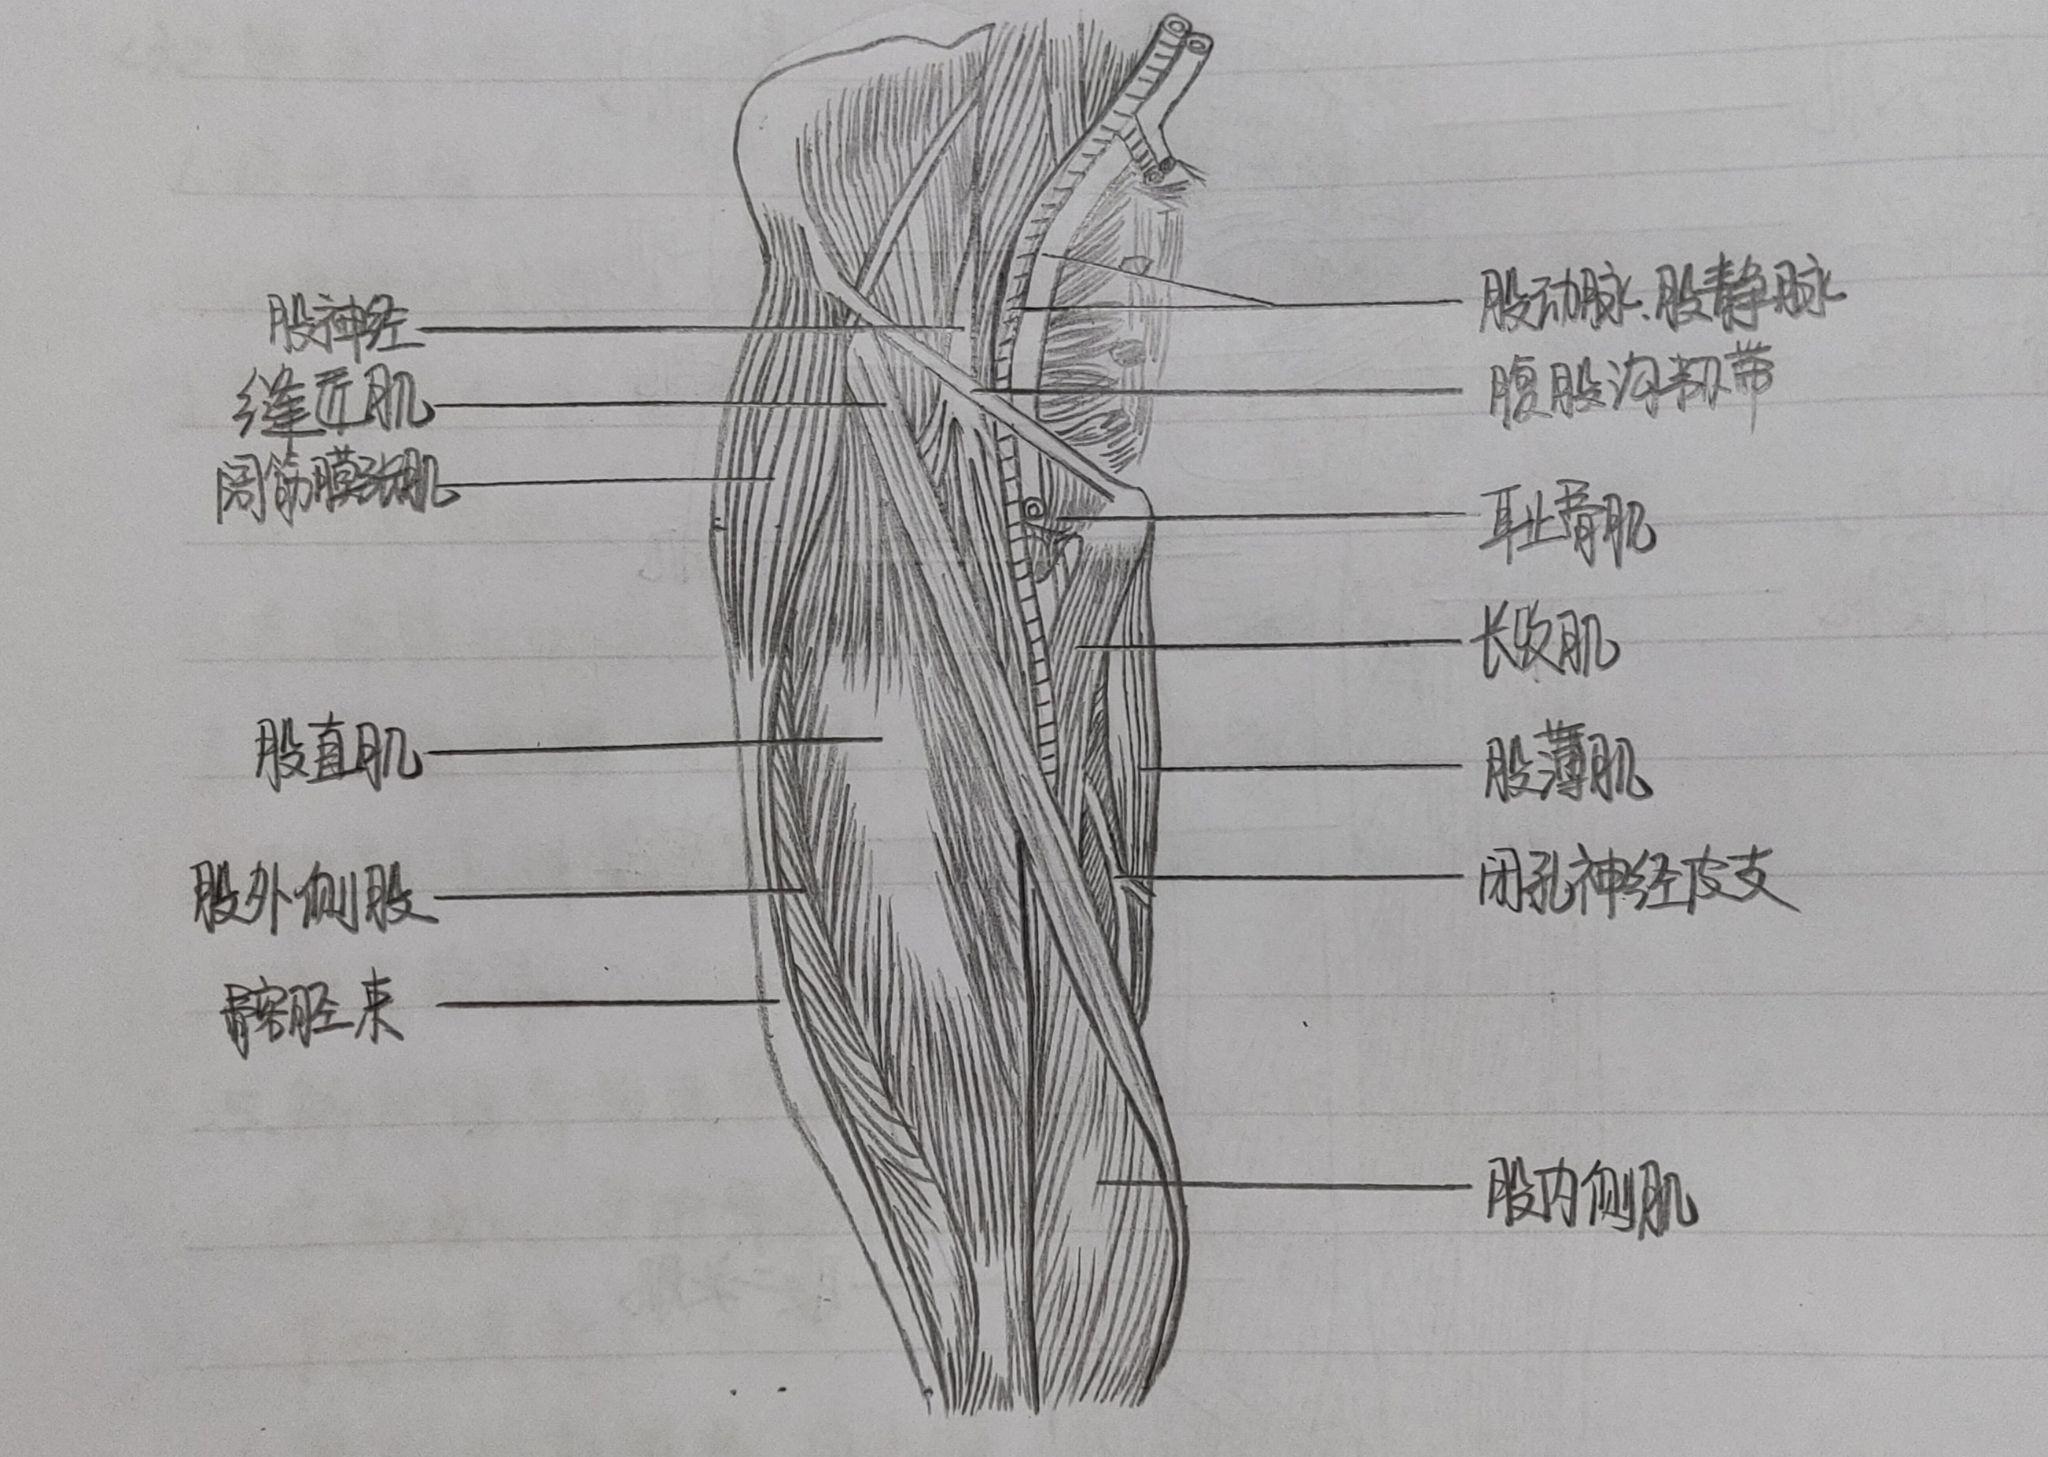 股神经
缝匠肌
阔筋膜张肌
股直肌
股外侧股
髂胫束
股动脉、股静脉
腹股沟韧带
耻骨肌
长收肌
股薄肌
闭孔神经皮支
股内侧肌